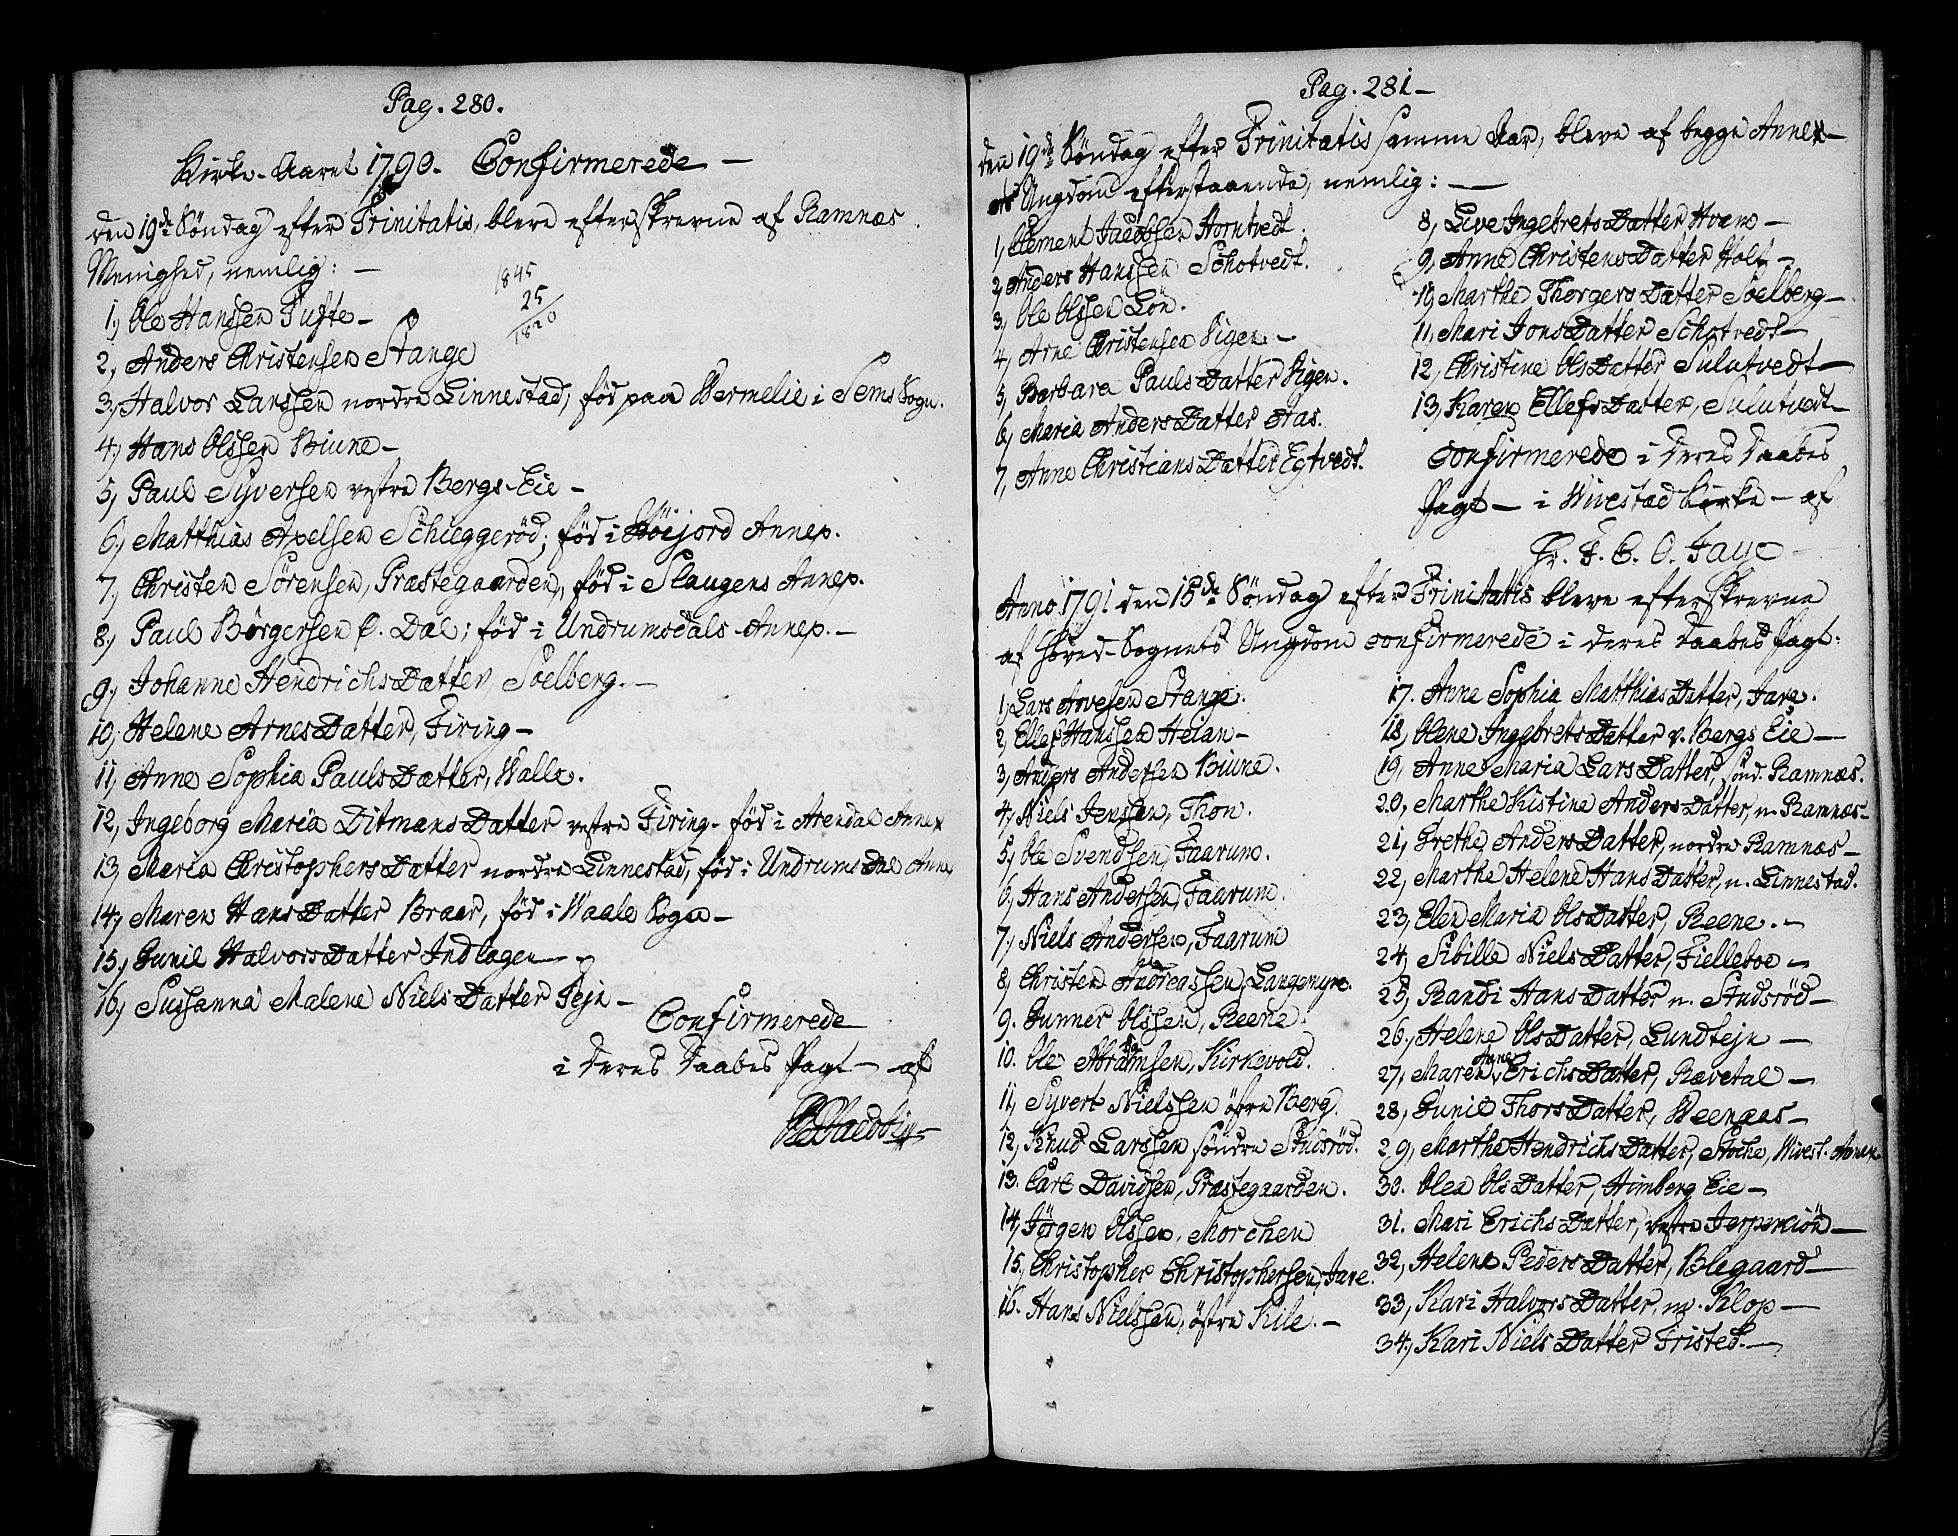 Pag. 280.
Kirke-Aaret 1790. Confirmerede —
den 19de Søndag efter Trinitatis, bleve efterskrevne af Ramnæs
Menighed, nemlig: —
1845
25
1820
1, Ole Hanssen Tufte —
2, Anders Christensen Stange
3, Halvor Larssen nordre Linnestad, fød paa Bermelie i Sems Sogn.
4, Hans Olssen Biune —
5, Paul Syversen vestre Bergs-Eie —
6, Matthias Axelsen Schieggerød; fød i Höijord Annex.
7, Christen Sørensen, Præstegaarden, fød i Slaugens Annex.
8, Paul Børgersen Dal; fød i Undrumsdals-Annex. —
9, Johanne HendrichsDatter, Soelberg. —
10, Helene ArnesDatter, Firing —
11, Anne Sophia PaulsDatter, Walle.
12, Ingeborg Maria DitmansDatter vestre Firing - fød i Arendal Annex
13, Maria ChristophersDatter nordre Linnestad, fød i UndrumsDal Annex
14, Maren HansDatter Braar, fød i Waale Sogn —
15, Gunil HalvorsDatter Indlagen —
16, Sussanna Malene NielsDatter Tejn —
Confirmerede
i deres Daabes Pagt — af
Pag. 281 —
den 19de Søndag efter Trinitatis samme Aar, bleve af begge Annex-
ets Ungdom efterstaaende, nemlig: —
1, Clement Jacobsen Horntvedt.
2, Anders Hanssen Schotvedt.
3, Ole Olssen Lön.
4, Arne Christensen Vigen —
5, Barbara PaulsDatter Vigen.
6, Maria AndersDatter Aas.
7, Anne ChristiansDatter Egtvedt.
8, Live IngebretsDatter Hvam —
9, Anne ChristensDatter Holt —
10, Marthe ThorgersDatter Soelberg —
11, Mari JonsDatter Schotvedt —
12, Christine OlsDatter Sulutvedt —
13, Karen EllefsDatter, Sulutvedt —
Confirmerede i deres Daabes
Pagt — i Wivestad Kirke — af
Hr. F. C. O. Faye
Anno 1791 den 18de Søndag efter Trinitatis bleve efterskrevne
af Hoved-Sognets Ungdom confirmerede i deres Daabes Pagt:
1, Lars Arvesen Stange.
2, Ellef Hanssen Heian —
3, Anders Andersen Biune.
4, Niels Jenssen, Thon.
5, Ole Svendsen, Faarum.
6, Hans Andersen, Faarum.
7, Niels Andersen, Faarum
8, Christen Andreassen, Langemyre.
9. Gunner Olssen, Reene.
10. Ole Abramsen, Kirkevold.
11, Syvert Nielssen østre Berg.
12, Knud Larssen søndre Studsrød.
13. Carl Davidsen, Præstegaarden.
14, Jørgen Olssen, Morchen
15, Christopher Christophersen, Jare.
16. Hans Nielssen, østre Kile. —
17. Anne Sophia MatthiasDatter, Jare.
18, Olene IngebretsDatter v. Bergs Eie —
19, Anne Maria LarsDatter, sønd. Ramnæs.
20, Marthe Kistine AndersDatter, n. Ramnæs —
21, Grethe AndersDatter, nordre Ramnæs —
22, Marthe Helene HansDatter, n. Linnestad.
23, Elen Maria OlsDatter, Reene. —
24, Sibille NielsDatter, Fielleboe —
25, Randi HansDatter n. Studsrød —
26, Helene OlsDatter, Lundtejn —
27, Maren Anne ErichsDatter, Rævetal —
28, Gunil ThorsDatter, Weenaas —
29, Marthe HendrichsDatter, Stoche, Wivest. Annex
30. Olea OlsDatter, Himberg Eie —
31. Mari ErichsDatter, vestre Jerpeniön —
32, Helene PedersDatter, Blegaard —
33, Kari HalvorsDatter, m. Klop —
34, Kari NielsDatter Fristed. —